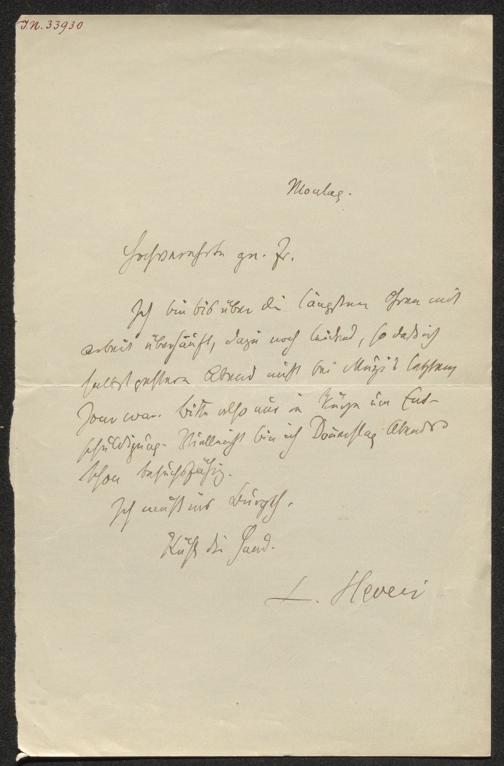 I.N. 33930
Montag.
Hochverehrte gn. Fr.
Ich bin bis über die längsten Ohren mit
Arbeit überhäuft, dazu noch leidend, so daß ich
selbst gestern Abend nicht bei letztem
Jour war. Bitte also nur in Kürze um Ent-
schuldigung. Vielleicht bin ich Donnerstag Abends
schon besuchsfähig.
Ich muß ins Burgth.
Küß die Hand.
L. Hevesi